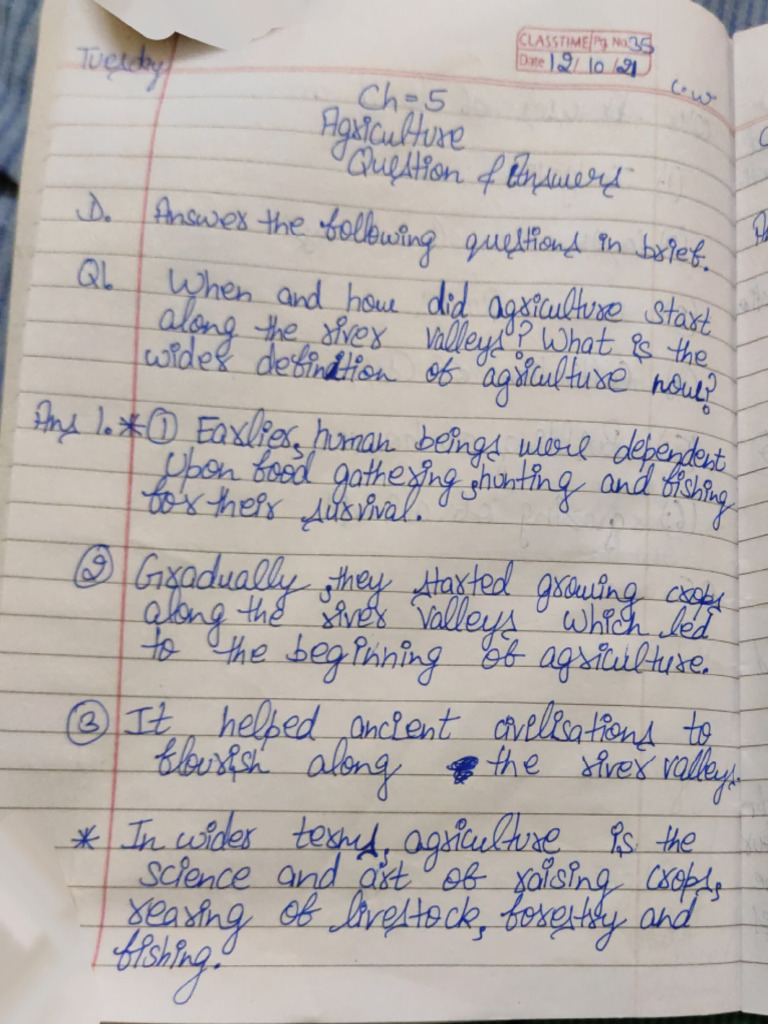 CLASSTIME Pg. No. 35
Date 12/10/21
Tuesday
C.W
Ch = 5
Agriculture
Question & Answers
D. Answer the following questions in brief.
Q1. When and how did agriculture start
along the river valleys? What is the
wider definition of agriculture now?
Ans 1. * ① Earlier, human beings were dependent
upon food gathering, hunting and fishing
for their survival.
② Gradually, they started growing crops
along the river valleys which led
to the beginning of agriculture.
③ It helped ancient civilisations to
flourish along the river valleys.
* In wider terms, agriculture is the
science and art of raising crops,
rearing of livestock, forestry and
fishing.